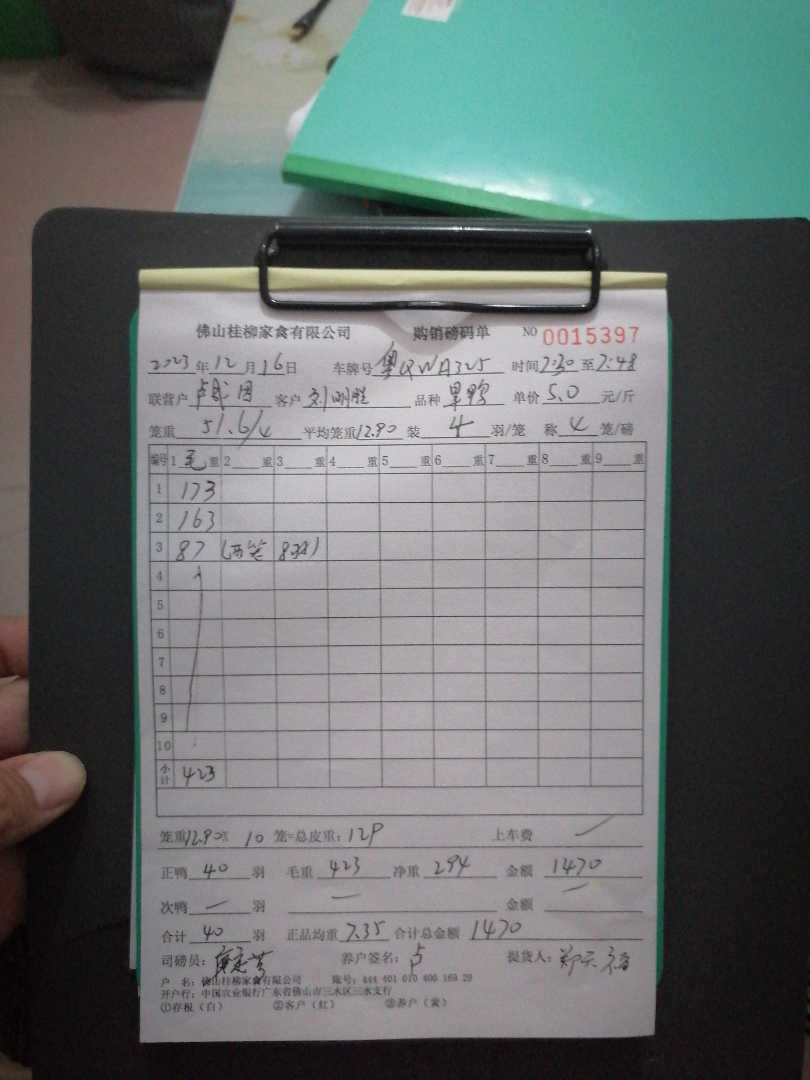 佛山桂柳家禽有限公司 购销磅码单 NO 0015397
2023年12月16日 车牌号 粤QWA325 时间7:30至7:48
联营户 客户 刘明胜 品种 单价 5.0 元/斤
笼重 51.6/4 平均笼重12.90 装 4 羽/笼 称 4 笼/磅
编号 1 毛 重 2 重 3 重 4 重 5 重 6 重 7 重 8 重 9 重
1 173
2 163
3 87 (两笼 8羽)
4
5
6
7
8
9
10
小计 423
笼重12.90X 10 笼=总皮重: 129 上车费 —
正鸭 40 羽 毛重 423 净重 294 金额 1470
次鸭 — 羽 — 金额 —
合计 40 羽 正品均重 7.35 合计总金额 1470
司磅员: 养户签名: 卢 提货人:
户 名: 佛山桂柳家禽有限公司 账号: 444 401 010 400 169 29
开户行: 中国农业银行广东省佛山市三水区三水支行
①存根(白) ②客户(红) ③养户(黄)